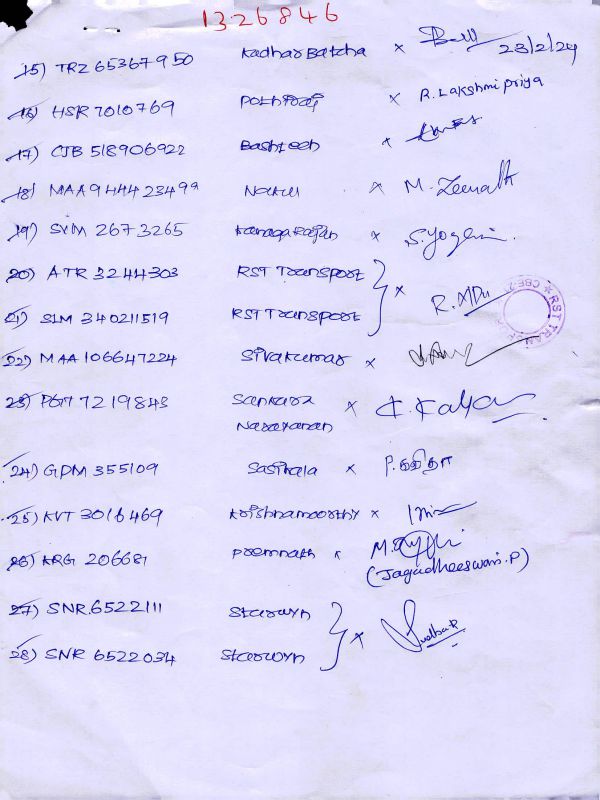 1326846
15) TRZ 65367950 Kadhar Batcha × 23/2/24
16) HSR 7010769 Pothiraj × R. Lakshmi priya
17) CJB 518906922 Basheeh ×
18) MAA 944423499 Nakul × M. Zeenath
19) SXM 2673265 ×
20) ATR 3244303 RST Transport
×
21) SLM 340211519 RST Transport
RST TRAN
22) MAA 106647224 Sivakumar ×
23) PGM 7219843 Sankara × K. Kalya
Narayanan
24) GDM 355109 Sasikala × P.
25) KVT 3016469 Krishnamoorthy ×
26) KRG 206681 Premnath × M.
(Jagadheeswari.P)
27) SNR.6522111 Starwyn
×
28) SNR 6522034 Starwyn